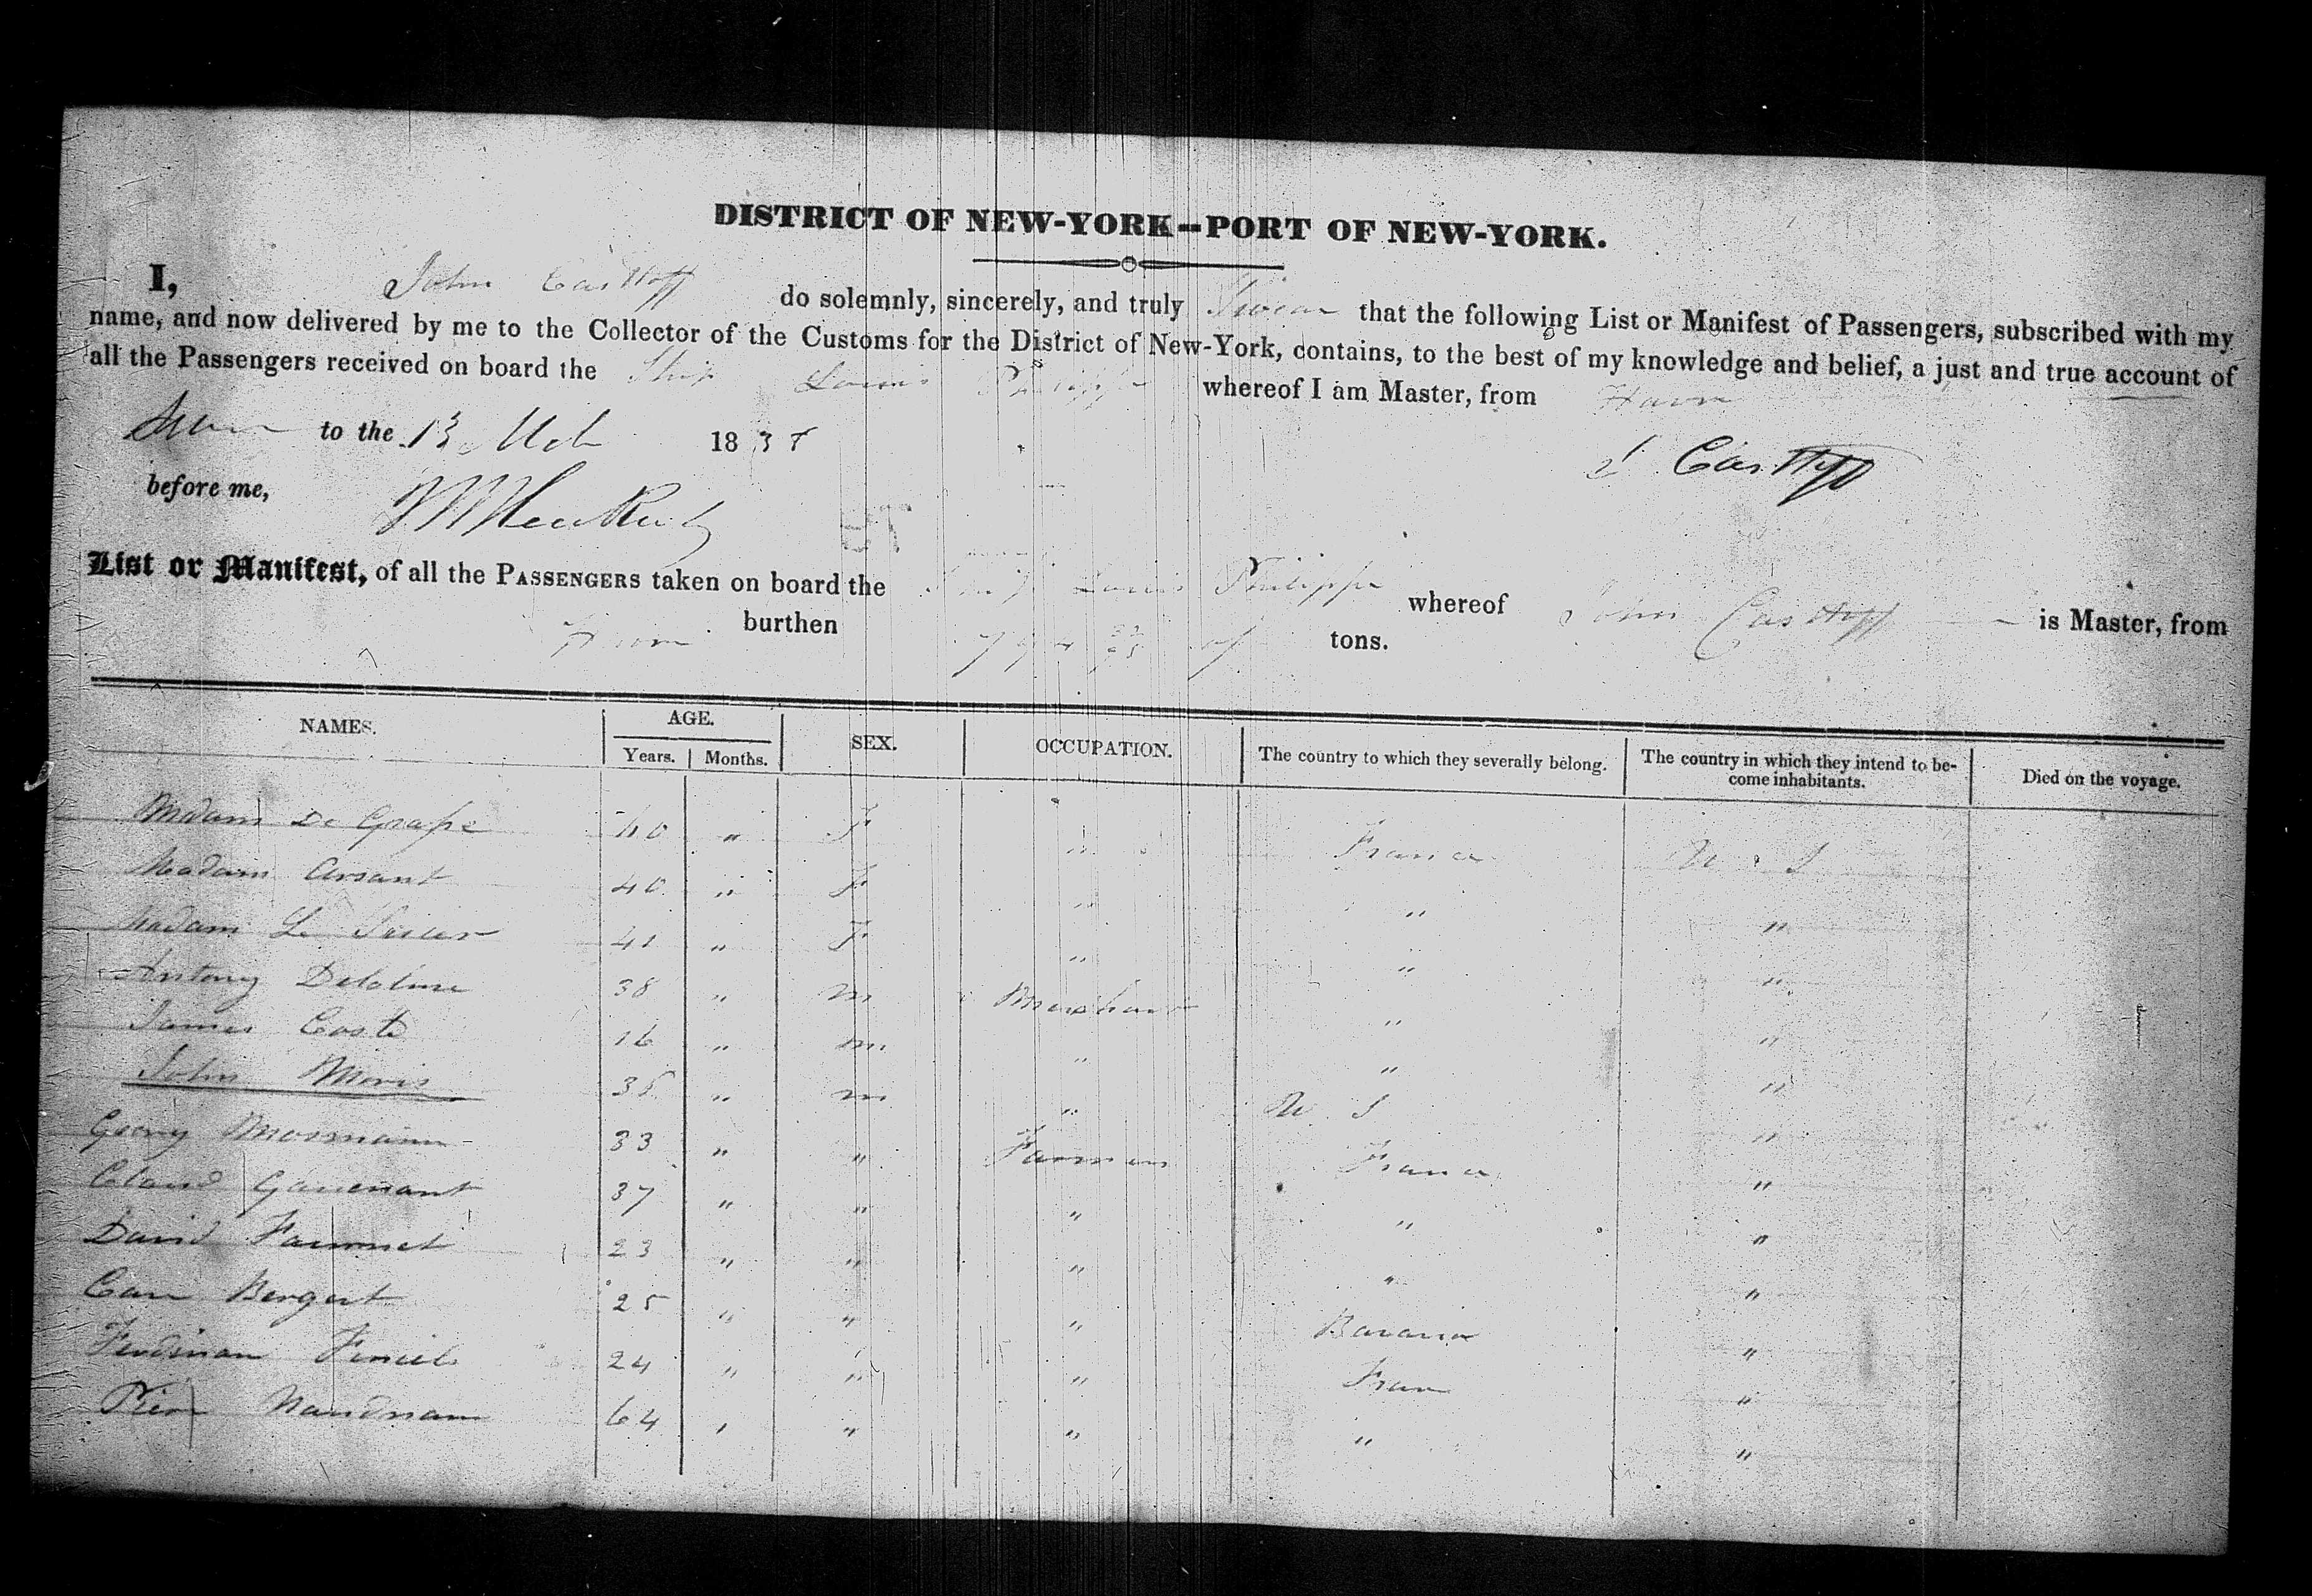 DISTRICT OF NEW-YORK—PORT OF NEW-YORK.
I, John Castoff do solemnly, sincerely, and truly Swear that the following List or Manifest of Passengers, subscribed with my
name, and now delivered by me to the Collector of the Customs for the District of New-York, contains, to the best of my knowledge and belief, a just and true account of
all the Passengers received on board the Ship Louis Philippe whereof I am Master, from Havre
Sworn to the 13 Mch 1838
J Castoff
before me,
List or Manifest, of all the PASSENGERS taken on board the Ship Louis Philippe whereof John Castoff is Master, from
Havre burthen tons.
NAMES. AGE. SEX. OCCUPATION. The country to which they severally belong. The country in which they intend to be-come inhabitants. Died on the voyage.
Years. Months.
Madam De Grape 40 " F " France U S
Madam Arsant 40 " F " " "
Madam Le Sieur 41 " F " " "
Antony 38 " m Merchant " "
James Coste 16 " m " " "
John Moris 35 " m " U S "
Georg Mosmann 33 " " Farmers France "
Claud 37 " " " " "
David 23 " " " " "
Bergert 25 " " " Bavaria "
24 " " " Fran "
Pier 64 " " " " "